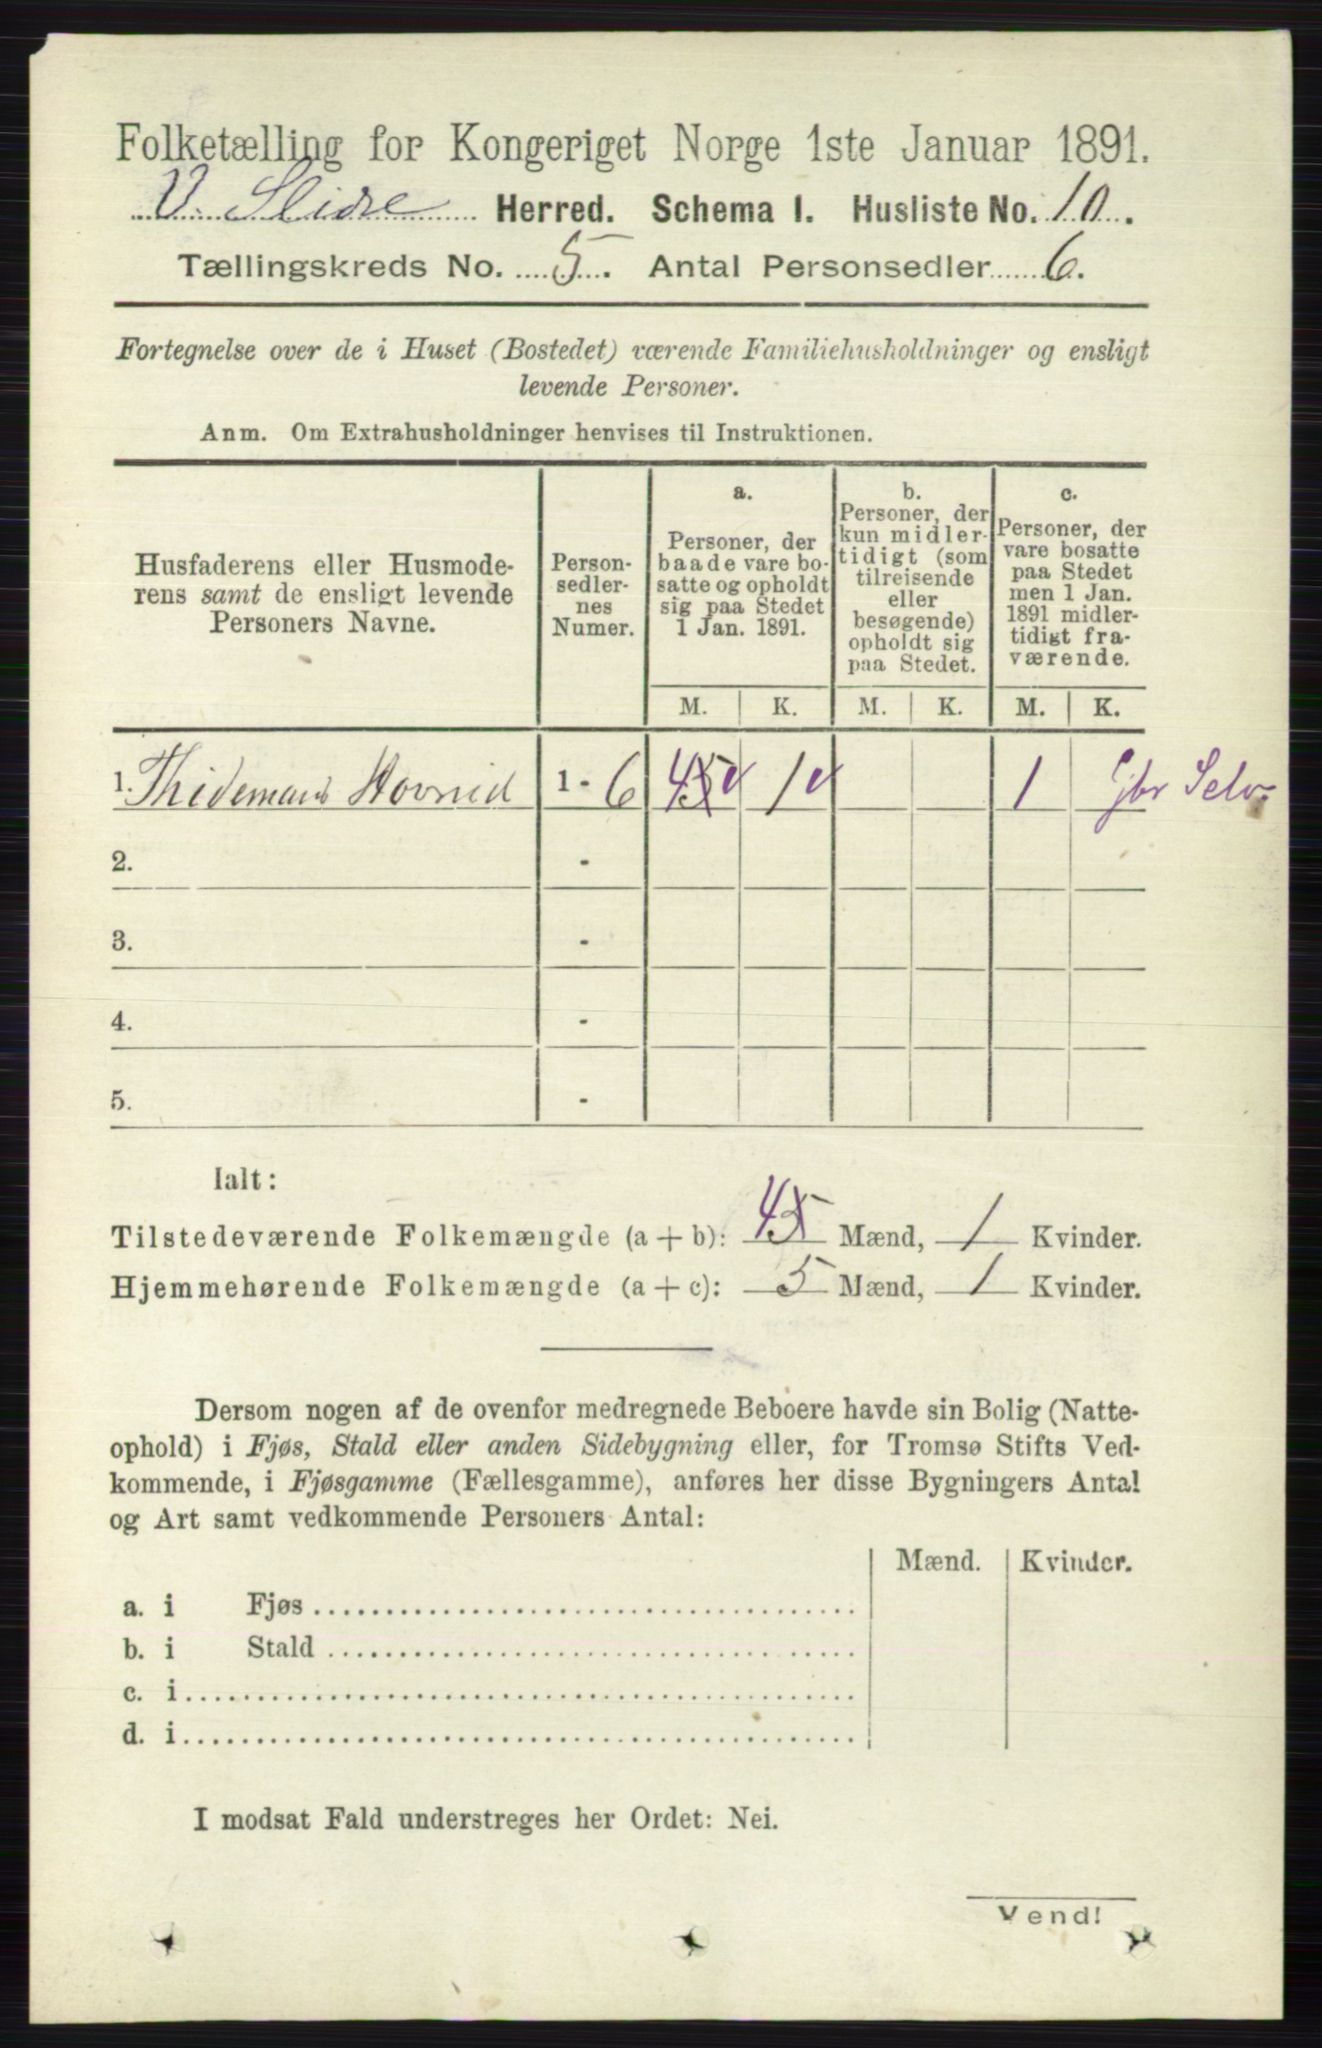 Folketælling for Kongeriget Norge 1ste Januar 1891.
V. Slidre Herred. Schema I. Husliste No. 10.
Tællingskreds No. 5. Antal Personsedler 6.
Fortegnelse over de i Huset (Bostedet) værende Familiehusholdninger og ensligt
levende Personer.
Anm. Om Extrahusholdninger henvises til Instruktionen.
Husfaderens eller Husmode-
rens samt de ensligt levende
Personers Navne.
Person-
sedler-
nes
Numer.
a.
Personer, der
baade vare bo-
satte og opholdt
sig paa Stedet
1 Jan. 1891.
b.
Personer, der
kun midler-
tidigt (som
tilreisende
eller
besøgende)
opholdt sig
paa Stedet.
c.
Personer, der
vare bosatte
paa Stedet
men 1 Jan.
1891 midler-
tidigt fra-
værende.
M. K. M. K. M. K.
1. Thidemand Hovrud 1 - 6 4 5 1 1
2. -
3. -
4. -
5. -
Ialt:
Tilstedeværende Folkemængde (a + b): 4 5 Mænd, 1 Kvinder.
Hjemmehørende Folkemængde (a + c): 5 Mænd, 1 Kvinder.
Dersom nogen af de ovenfor medregnede Beboere havde sin Bolig (Natte-
ophold) i Fjøs, Stald eller anden Sidebygning eller, for Tromsø Stifts Ved-
kommende, i Fjøsgamme (Fællesgamme), anføres her disse Bygningers Antal
og Art samt vedkommende Personers Antal:
Mænd. Kvinder.
a. i Fjøs
b. i Stald
c. i
d. i
I modsat Fald understreges her Ordet: Nei.
Vend!